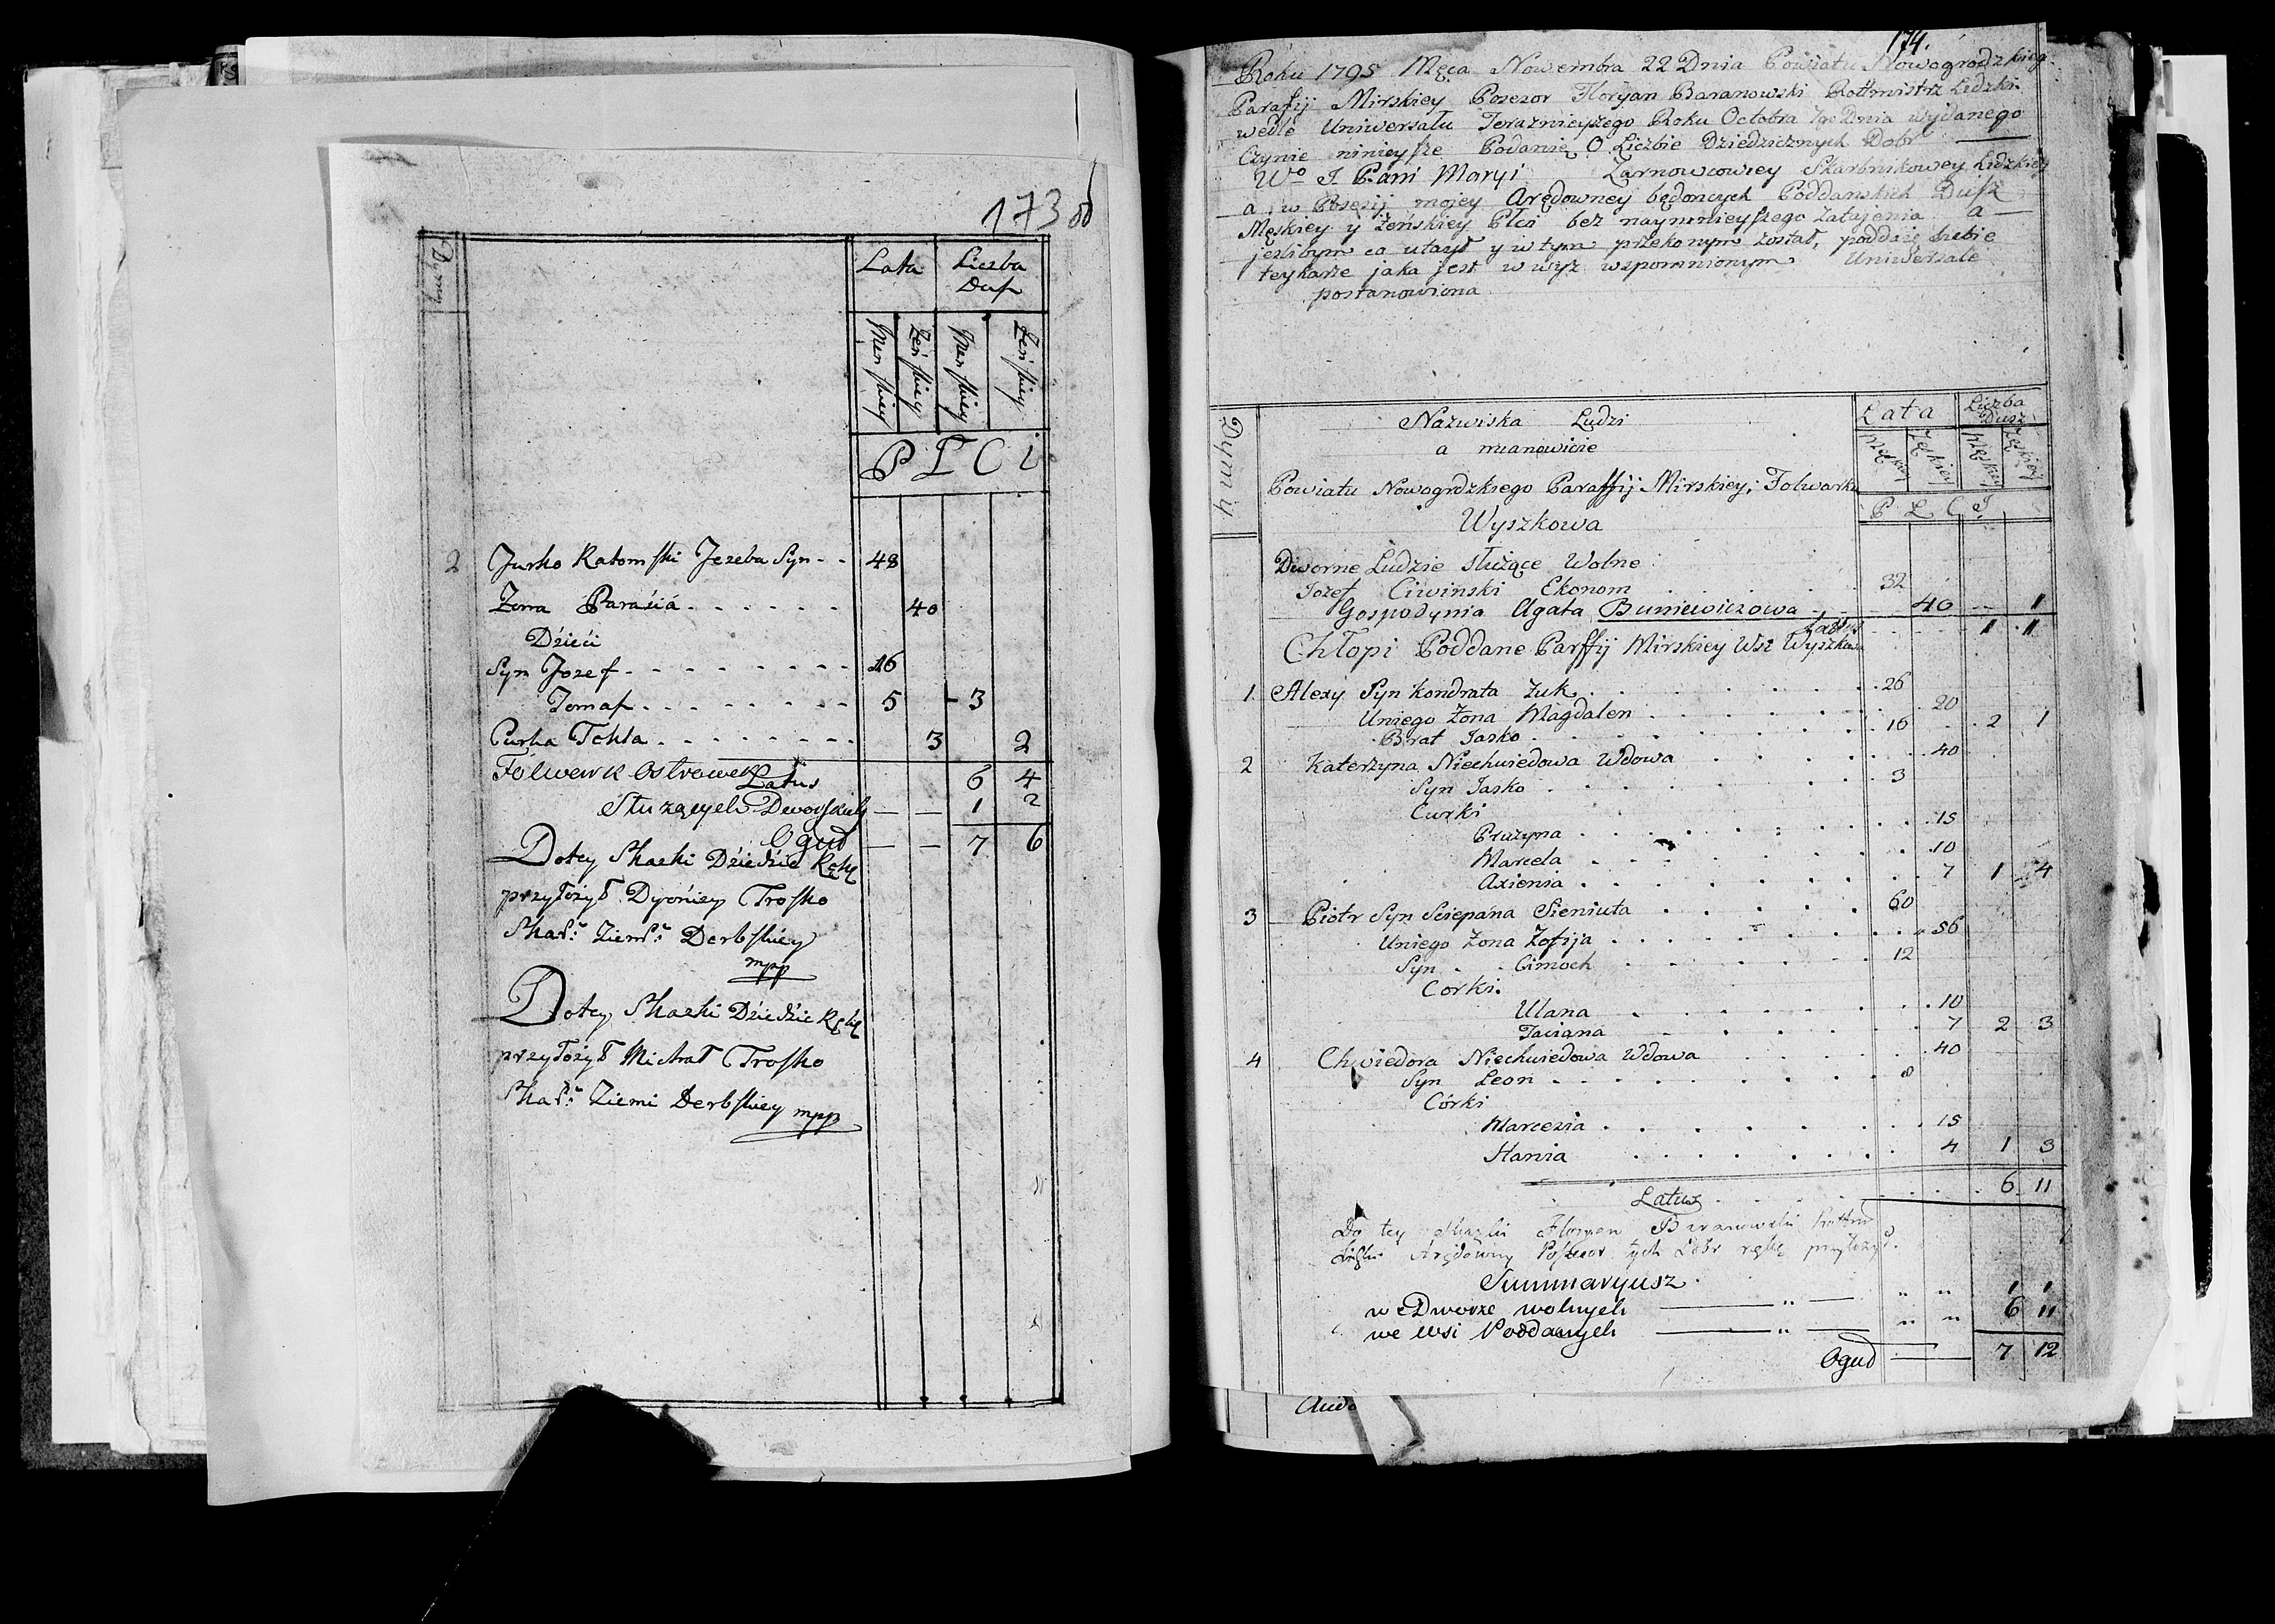 173 об
Dymy
Lata Liczba Dusz
Męskiey Żeńskiey Męskiey Żeńskiey
P Ł C i
2 Jurko Ratomski Jezeba Syn - - 48
Zona Parasia . . . . . . 40
Dzieci
Syn Jozef - - - - - - - - 16
Tomasz . . - - - - - - 5 - 3
Curka Tekla . - - - - - - - 3 2
Folwark Ostrowek
Latus 6 4
Służących Dworskich — — 1 2
Oguł — — 7 6
Do tey Skazki Dziedzic Rękę
przyłożył Dyonizy Trosko
Skar: Ziem: Derbskiey
mpp
Do tey Skazki Dziedzic Rękę
przyłożył Michał Trosko
Skar: Ziemi Derbskiey mpp
174.
Roku 1795 Męca Nowembra 22 Dnia Powiatu Nowogrodzkieg.
Parafij Mirskiey Posezor Floryan Baranowski Rottmistrz Lidzki
wedle Uniwersału Teraznieyszego Roku Octobra 7go Dnia wydanego
Czynie ninieysze Podanię O Liczbie Dziedzicznych Dobr
Wo J. Pani Maryi Zarnowcowiey Skarbnikowey Lidzkiey
a w Posesij mojey Arędowney będoncych Poddanskich Dusz
Męskiey y Żeńskiey Płci bez naymnieyszego zatajenia a
jeslibym co utaył y w tym przekonym został, poddaię siebie
teykarze jaka jest w wyż wspomnionym Uniwersale
postanowiona
Dymy
Nazwiska Ludzi
a mianowicie
Lata Liczba Dusz
Męskiey Żęskiey Męskiey Żęskiey
P Ł C I
Powiatu Nowogrdzkiego Paraffij Mirskiey, Folwarku
Wyszkowa
Dworne Ludzie służące Wolne
Jozef Ciwinski Ekonom . . . . 32
Gospodynia Agata Buniewiczowa - - - 40 - 1
Latus . . . . 1 . 1
Chłopi Poddane Parffij Mirskiey Wsi Wyszkow
1 Alexy Syn Kondrata Zuk . . . . . . . . 26
Uniego Żona Magdalen . . . . . . . . 20
Brat Jasko . . . . . . . . 16 . . 2 1
2 Katerzyna Niechwiedowa Wdowa . . . . . . 40
Syn Jasko . . . . . . . . 3
Curki
Pruzyna . . . . . . . . 15
Marcela . . . . . . . . 10
Axienia . . . . . . . . 7 1 4
3 Piotr Syn Sciepana Sieniuta . . . . . 60
Uniego Żona Zofija . . . . . . . . 56
Syn . . Cimoch . . . . . . . 12
Corki.
Ulana . . . . . . . . 10
Taciana . . . . . . . 7 2 3
4 Chwiedora Niechwiedowa Wdowa . . . . . . 40
Syn Leon . . . . . . . . 8
Córki
Marcezia . . . . . . . . 15
Hania . . . . . . . . 4 1 3
Latus . . . . . . . . 6 11
Do tey Skazki Floryan Baranowski Rottm
Lidzki Arędowny Possesor tych Dobr rękę przyłożył.
Summaryusz
we Dworze wolnych —— " — " " 1 1
we wsi Poddanych —— " — " " 6 11
Oguł —— 7 12